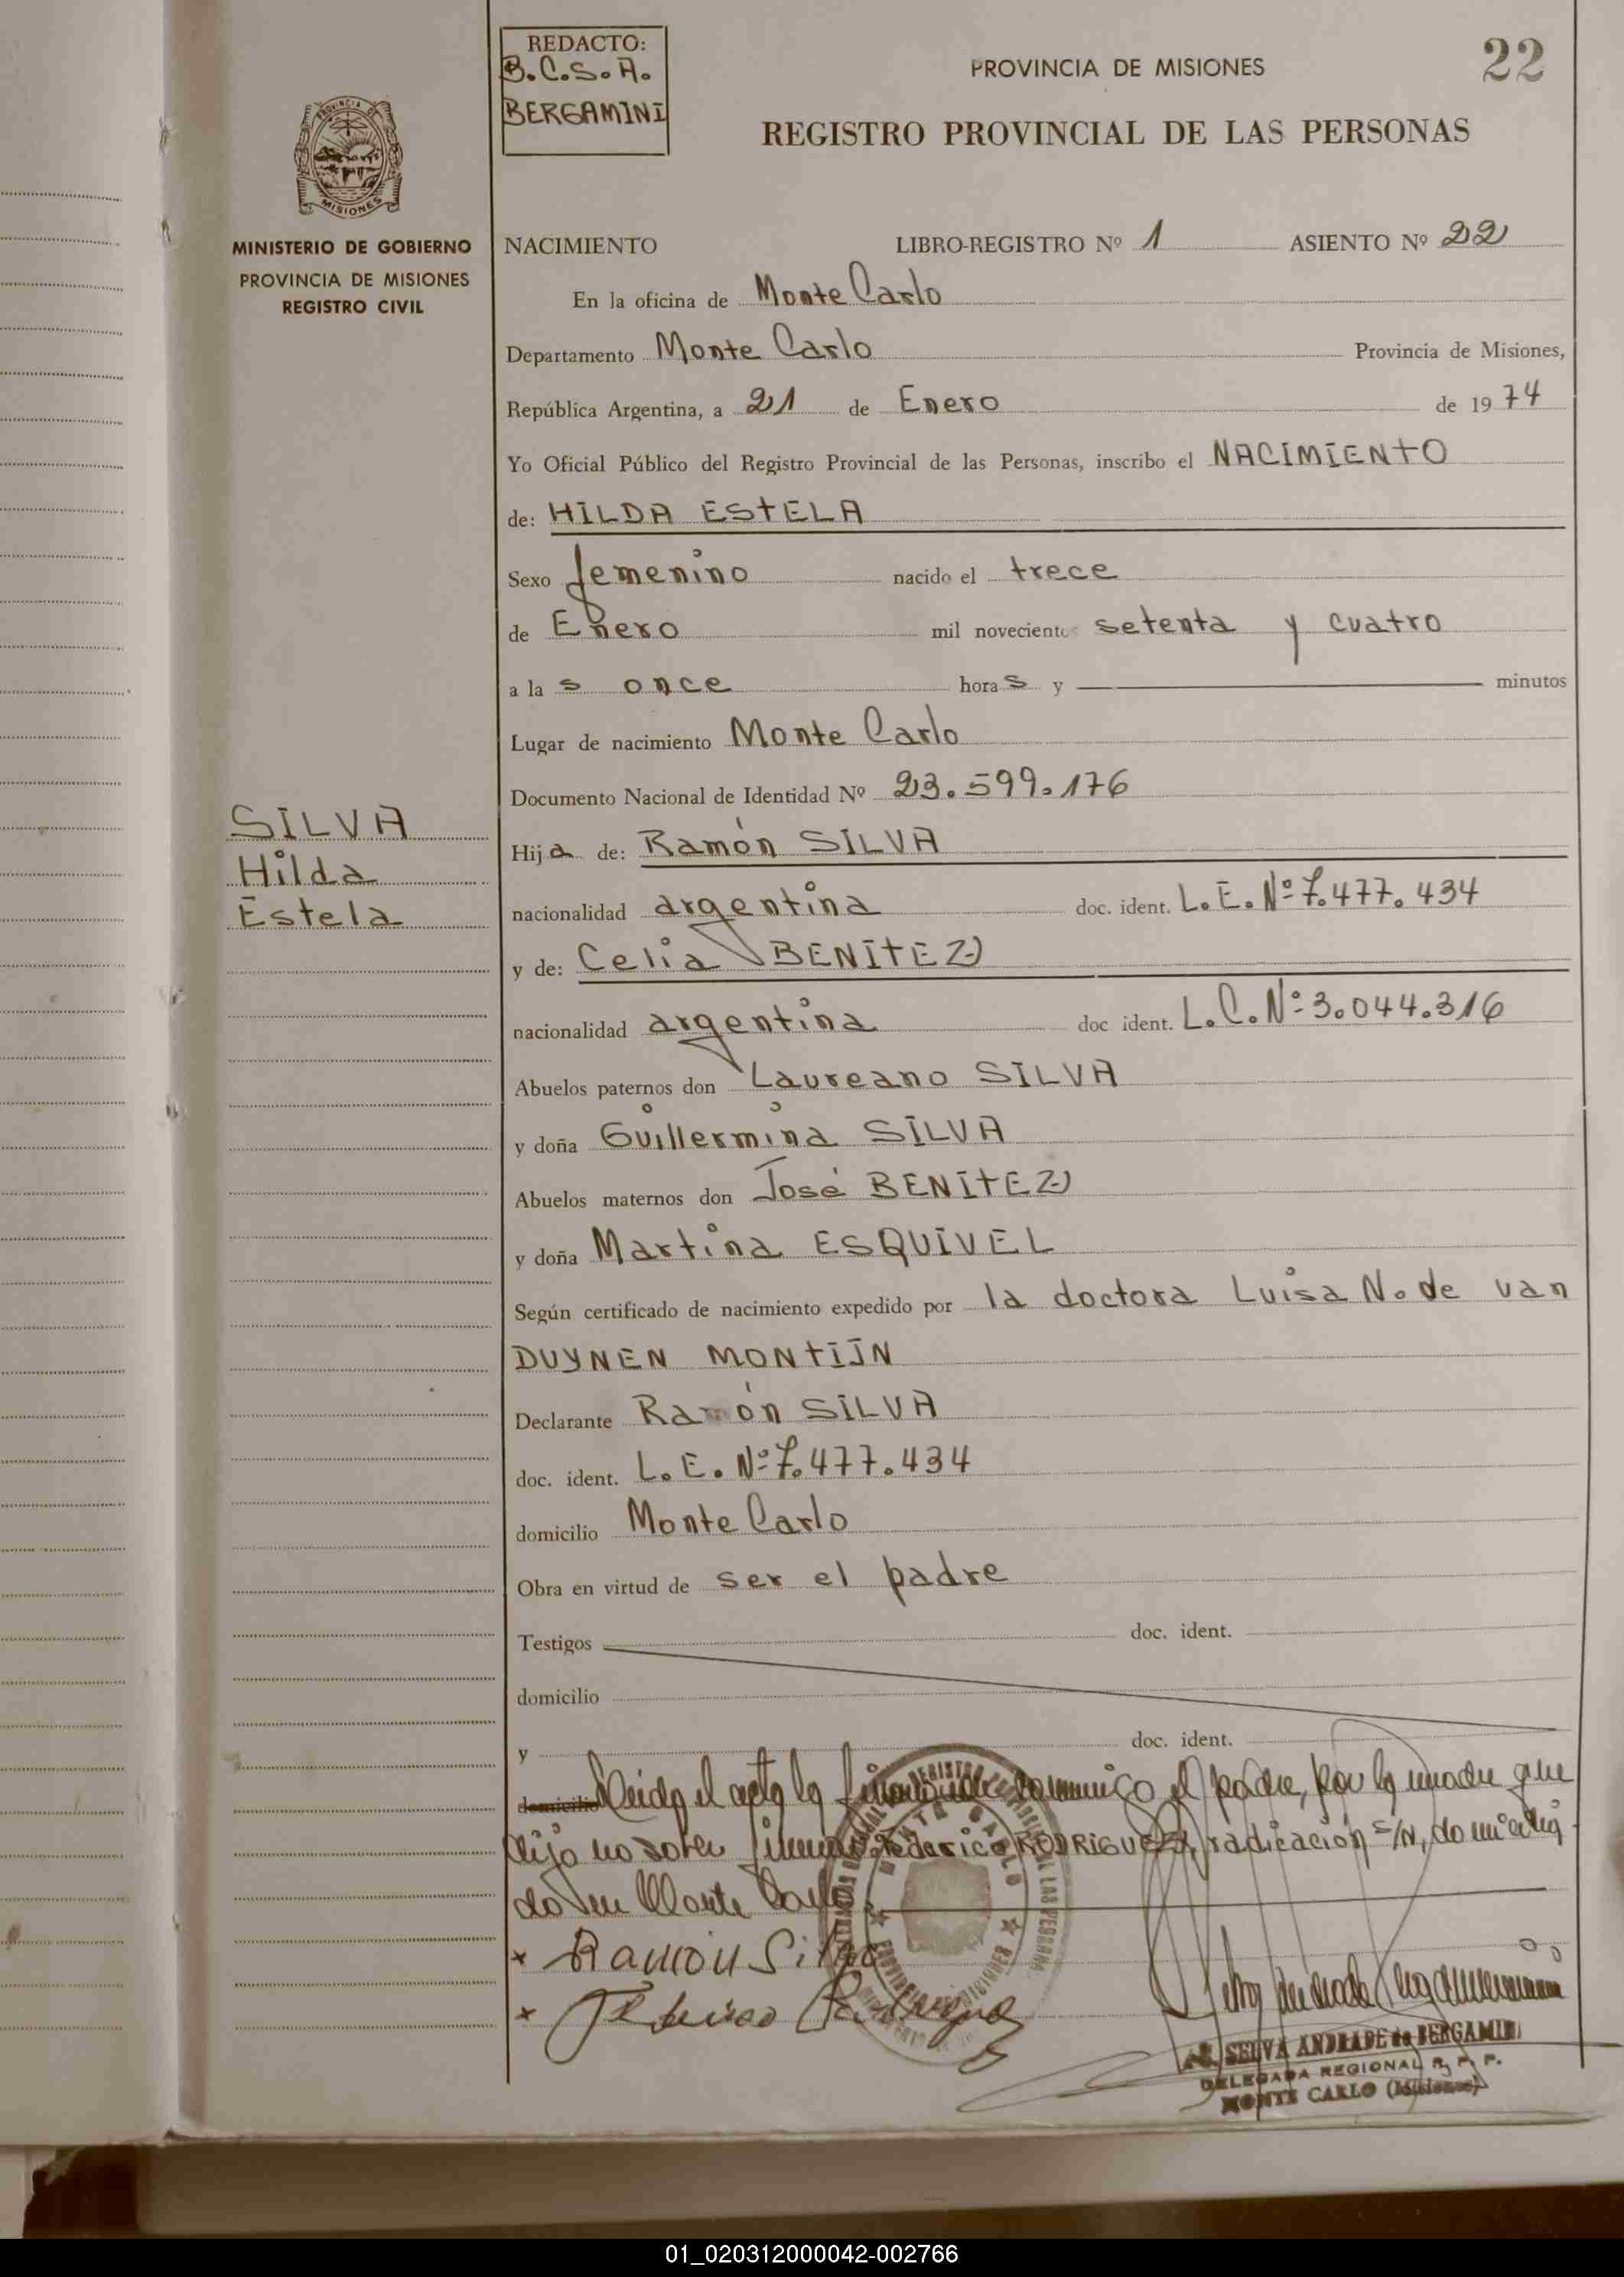 REDACTO:
B.C.S.A.
BERGAMINI
PROVINCIA DE MISIONES
22
REGISTRO PROVINCIAL DE LAS PERSONAS
MISIONES
MINISTERIO DE GOBIERNO
PROVINCIA DE MISIONES
REGISTRO CIVIL
NACIMIENTO LIBRO-REGISTRO Nº 1 ASIENTO Nº 22
En la oficina de Monte Carlo
Departamento Monte Carlo Provincia de Misiones,
República Argentina, a 21 de Enero de 1974
Yo Oficial Público del Registro Provincial de las Personas, inscribo el NACIMIENTO
de: HILDA ESTELA
Sexo femenino nacido el trece
de Enero mil novecientos setenta y cuatro
a las once horas y minutos
Lugar de nacimiento Monte Carlo
Documento Nacional de Identidad Nº 23.599.176
SILVA
Hilda
Estela
Hija de: Ramón SILVA
nacionalidad argentina doc. ident. L.E.Nº 7.477.434
y de: Celia BENITEZ
nacionalidad argentina doc ident. L.C.Nº 3.044.316
Abuelos paternos don Laureano SILVA
y doña Guillermina SILVA
Abuelos maternos don José BENITEZ
y doña Martina ESQUIVEL
Según certificado de nacimiento expedido por la doctora Luisa N. de van
DUYNEN MONTIJN
Declarante Ramón SILVA
doc. ident. L.E. Nº 7.477.434
domicilio Monte Carlo
Obra en virtud de ser el padre
Testigos doc. ident.
domicilio
y doc. ident.
domicilio Leida el acta la conmigo el padre, por la madre que
dijo no saber firmar Federico RODRIGUEZ, radicación S/N, domicilia
do en Monte Carlo
x Ramón Silva
x Federico Rodriguez
SELVA ANDRADE de BERGAMINI
DELEGADA REGIONAL R. P. P.
MONTE CARLO (Misiones)
01_020312000042-002766